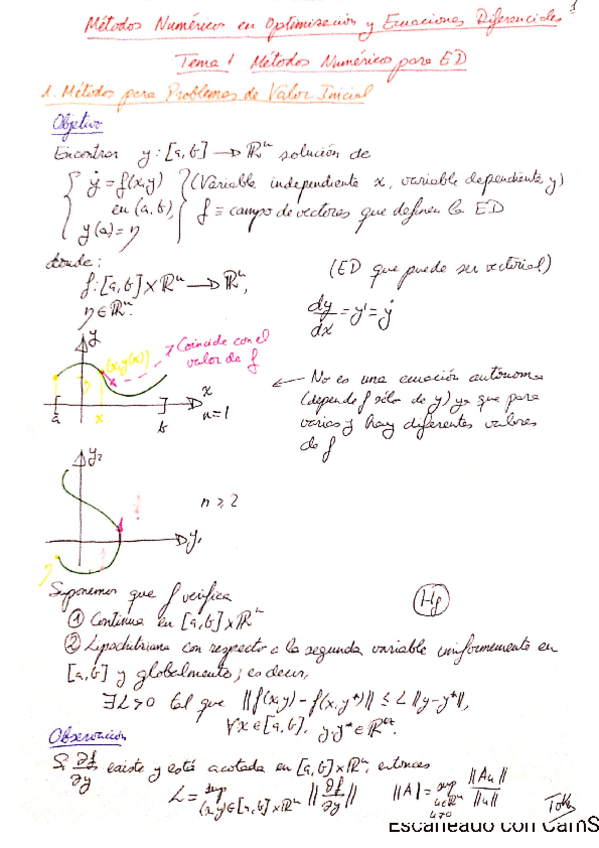 1
Métodos Numéricos en Optimización y Ecuaciones Diferenciales
Tema 1 Métodos Numéricos para ED
1. Métodos para Problemas de Valor Inicial
Objetivo
Encontrar y: [a,b] → ℝⁿ solución de
{ ẏ = f(x,y) } (Variable independiente x, variable dependiente y)
en (a,b), f ≡ campo de vectores que definen la ED
y(a) = η
donde:
f: [a,b] × ℝⁿ → ℝⁿ, (ED que puede ser vectorial)
η ∈ ℝⁿ.
dy/dx = y' = ẏ
y
(x,y(x))
Coincide con el
valor de f
η
a x b x
n=1
← No es una ecuación autónoma
(depende f sólo de y) ya que para
varios y hay diferentes valores
de f
y₂
n ≥ 2
y₁
η
Suponemos que f verifica (Hf)
① Continua en [a,b] × ℝⁿ
② Lipschitziana con respecto a la segunda variable uniformemente en
[a,b] y globalmente; es decir,
∃L>0 tal que ||f(x,y) - f(x,y*)|| ≤ L ||y-y*||,
∀x∈[a,b], y,y*∈ℝⁿ.
Observación
Si ∂f/∂y existe y está acotada en [a,b] × ℝⁿ, entonces
L = sup (x,y)∈[a,b]×ℝⁿ ||∂f/∂y|| ||A|| = sup u∈ℝⁿ u≠0 ||Au||/||u||
Escaneado con CamS